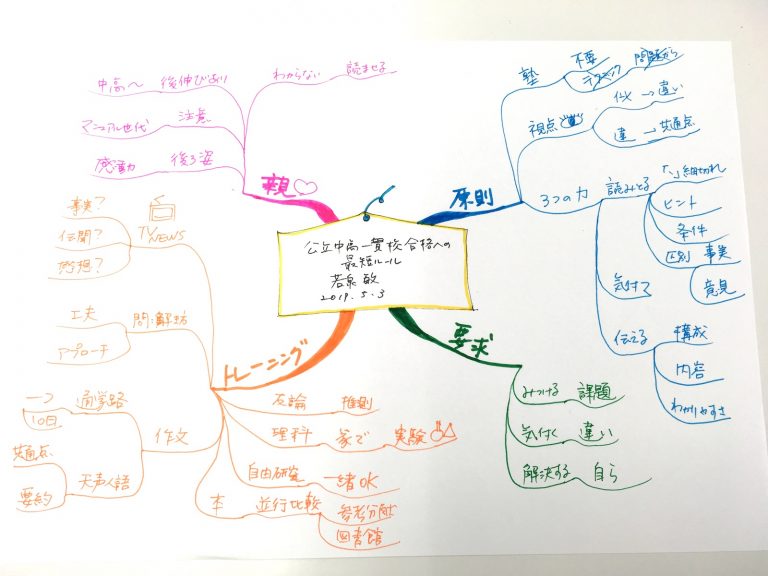 公立中高一貫校合格への
最短ルール
若泉 敏
2019.5.3
原則
塾
不要
テクニック
問題から
視点
似 → 違い
違 → 共通点
3つの力
読みとる
「、」細切れ
ヒント
条件
区別
事実
意見
気付く
伝える
構成
内容
わかりやすさ
要求
みつける 課題
気付く 違い
解決する 自ら
トレーニング
TV NEWS
事実?
伝聞?
感想?
問:解坊
工夫
アプローチ
作文
通学路
一つ
10日
天声人語
共通点
要約
反論 推測
理科 家で 実験
自由研究 一緒OK
本 並行比較
参考分献
図書館
親
わからない 読ませる
中高へ 後伸びあり
マニュアル世代 注意
感動 後ろ姿